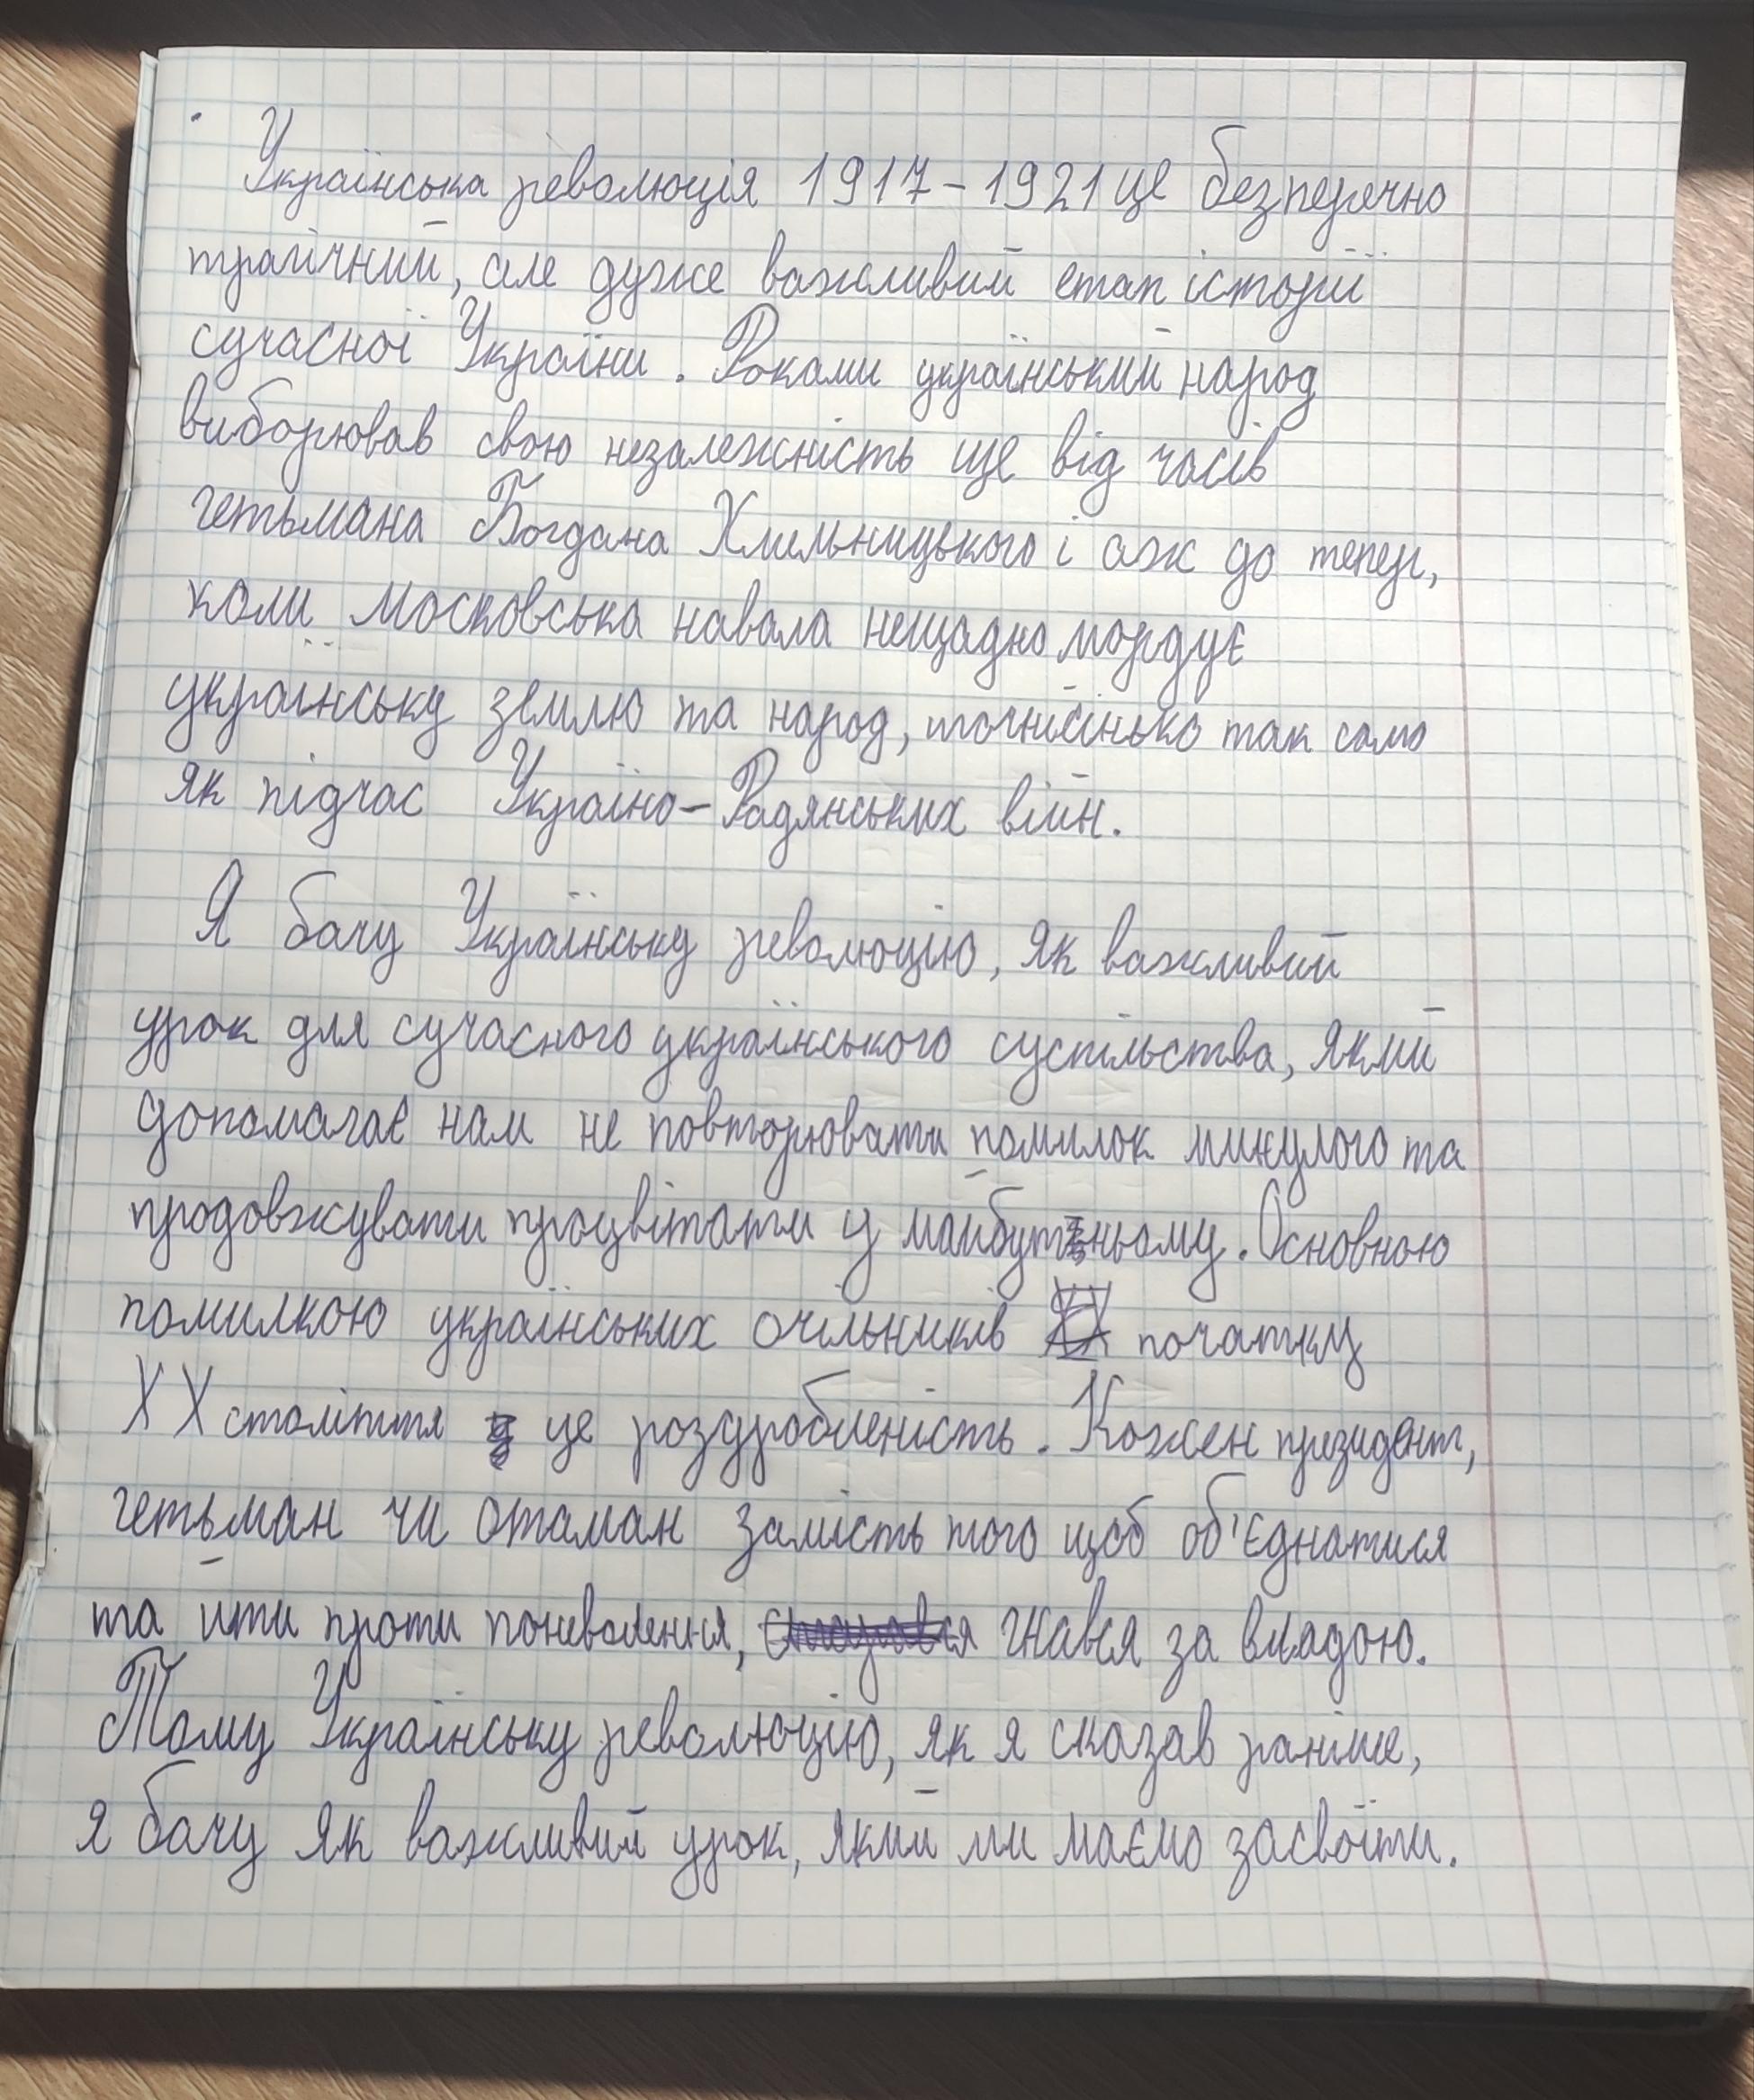 Українська революція 1917-1921 це безперечно
трагічний, але дуже важливий етап історії
сучасної України. Роками український народ
виборював свою незалежність ще від часів
гетьмана Богдана Хмельницького і аж до тепер,
коли московська навала нещадно мордує
українську землю та народ, точнісінько так само
як підчас Україно-Радянських війн.
Я бачу Українську революцію, як важливий
урок для сучасного українського суспільства, який
допомагає нам не повторювати помилок минулого та
продовжувати процвітати у майбутньому. Основною
помилкою українських очільників початку
ХХ століття це роздробленість. Кожен президент,
гетьман чи отаман замість того щоб об'єднатися
та йти проти поневолення, гнався за владою.
Тому Українську революцію, як я сказав раніше,
я бачу як важливий урок, який ми маємо засвоїти.